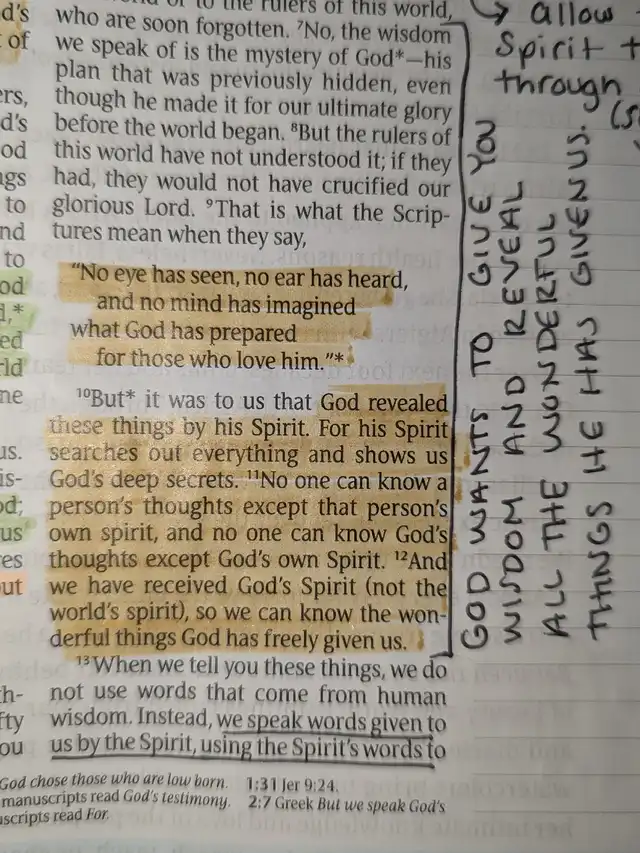 of to the rulers of this world,
who are soon forgotten. ⁷No, the wisdom
we speak of is the mystery of God*—his
plan that was previously hidden, even
though he made it for our ultimate glory
before the world began. ⁸But the rulers of
this world have not understood it; if they
had, they would not have crucified our
glorious Lord. ⁹That is what the Scrip-
tures mean when they say,
“No eye has seen, no ear has heard,
and no mind has imagined
what God has prepared
for those who love him.”*
¹⁰But* it was to us that God revealed
these things by his Spirit. For his Spirit
searches out everything and shows us
God’s deep secrets. ¹¹No one can know a
person’s thoughts except that person’s
own spirit, and no one can know God’s
thoughts except God’s own Spirit. ¹²And
we have received God’s Spirit (not the
world’s spirit), so we can know the won-
derful things God has freely given us.
¹³When we tell you these things, we do
not use words that come from human
wisdom. Instead, we speak words given to
us by the Spirit, using the Spirit’s words to
God chose those who are low born. 1:31 Jer 9:24.
manuscripts read God’s testimony. 2:7 Greek But we speak God’s
read For.
→ allow
Spirit
through
GOD WANTS TO GIVE YOU
WISDOM AND REVEAL
ALL THE WONDERFUL
THINGS HE HAS GIVEN US.